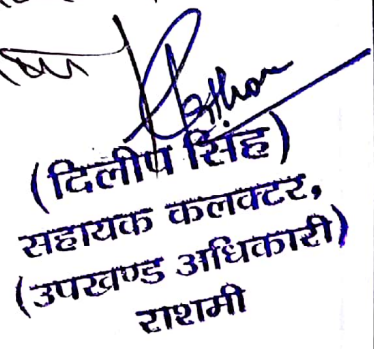 (दिलीप सिंह)
सहायक कलक्टर,
(उपखण्ड अधिकारी)
राशमी